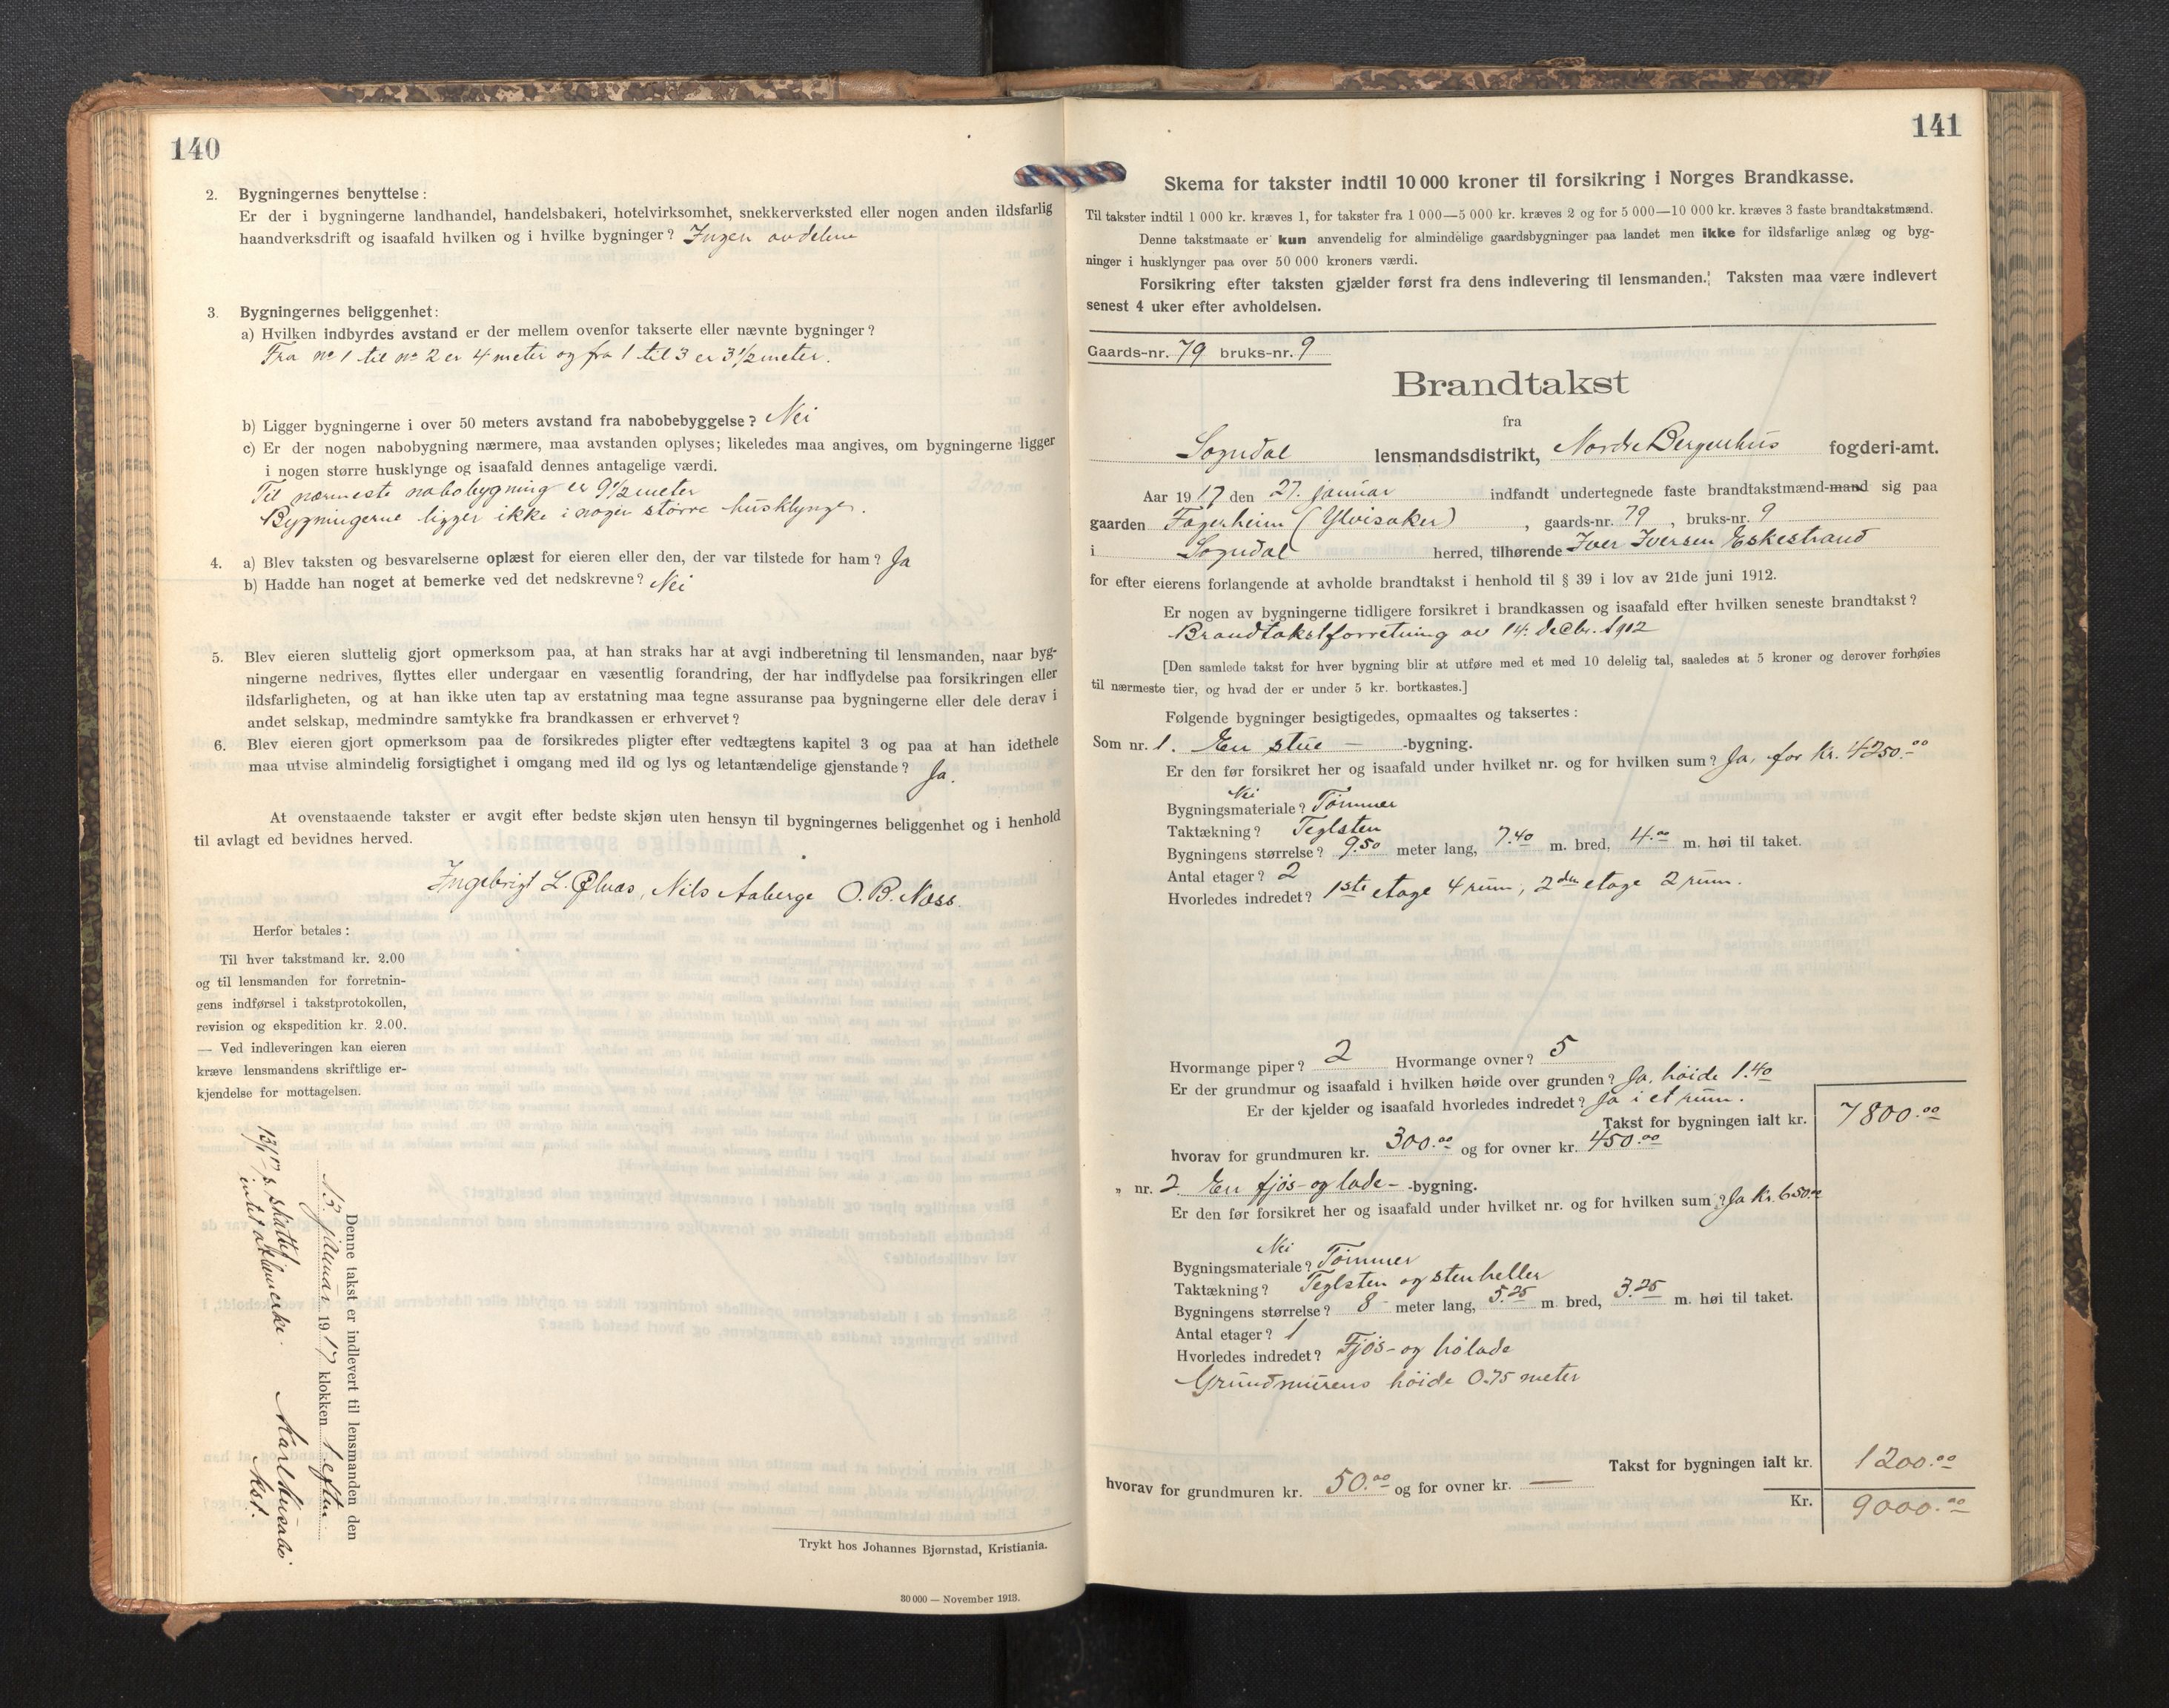 140
2. Bygningernes benyttelse:
Er der i bygningerne landhandel, handelsbakeri, hotelvirksomhet, snekkerverksted eller nogen anden ildsfarlig
haandverksdrift og isaafald hvilken og i hvilke bygninger? Ingen avdelene
3. Bygningernes beliggenhet:
a) Hvilken indbyrdes avstand er der mellem ovenfor takserte eller nævnte bygninger?
Fra no 1 til no 2 er 4 meter og fra 1 til 3 er 3 1/2 meter.
b) Ligger bygningerne i over 50 meters avstand fra nabobebyggelse? Nei
c) Er der nogen nabobygning nærmere, maa avstanden oplyses; likeledes maa angives, om bygningerne ligger
i nogen større husklynge og isaafald dennes antagelige værdi.
Til nærmeste nabobygning er 9 1/2 meter
Bygningerne ligger ikke i nogen større husklynge.
4. a) Blev taksten og besvarelserne oplæst for eieren eller den, der var tilstede for ham? Ja
b) Hadde han noget at bemerke ved det nedskrevne? Nei
5. Blev eieren sluttelig gjort opmerksom paa, at han straks har at avgi indberetning til lensmanden, naar byg-
ningerne nedrives, flyttes eller undergaar en væsentlig forandring, der har indflydelse paa forsikringen eller
ildsfarligheten, og at han ikke uten tap av erstatning maa tegne assuranse paa bygningerne eller dele derav i
andet selskap, medmindre samtykke fra brandkassen er erhvervet?
6. Blev eieren gjort opmerksom paa de forsikredes pligter efter vedtægtens kapitel 3 og paa at han idethele
maa utvise almindelig forsigtighet i omgang med ild og lys og letantændelige gjenstande? Ja.
At ovenstaaende takster er avgit efter bedste skjøn uten hensyn til bygningernes beliggenhet og i henhold
til avlagt ed bevidnes herved.
Ingebrigt L. Nils Aaberge O. B. Næss.
Herfor betales:
Til hver takstmand kr. 2.00
og til lensmanden for forretnin-
gens indførsel i takstprotokollen,
revision og ekspedition kr. 2.00.
— Ved indleveringen kan eieren
kræve lensmandens skriftlige er-
kjendelse for mottagelsen.
Denne takst er indlevert til lensmanden den
13 januar 1917 klokken 1 efterm
intet at bemerke.
Trykt hos Johannes Bjørnstad, Kristiania.
30 000 — November 1913.
141
Skema for takster indtil 10 000 kroner til forsikring i Norges Brandkasse.
Til takster indtil 1 000 kr. kræves 1, for takster fra 1 000—5 000 kr. kræves 2 og for 5 000—10 000 kr. kræves 3 faste brandtakstmænd.
Denne takstmaate er kun anvendelig for almindelige gaardsbygninger paa landet men ikke for ildsfarlige anlæg og byg-
ninger i husklynger paa over 50 000 kroners værdi.
Forsikring efter taksten gjælder først fra dens indlevering til lensmanden. Taksten maa være indlevert
senest 4 uker efter avholdelsen.
Gaards-nr. 79 bruks-nr. 9
Brandtakst
fra
Sogndal lensmandsdistrikt, Nordre Bergenhus fogderi-amt.
Aar 1917 den 27. januar indfandt undertegnede faste brandtakstmænd-mand sig paa
gaarden Fagerheim (Ylvisaker), gaards-nr. 79, bruks-nr. 9
i Sogndal herred, tilhørende Iver Iversen Eskestrand
for efter eierens forlangende at avholde brandtakst i henhold til § 39 i lov av 21de juni 1912.
Er nogen av bygningerne tidligere forsikret i brandkassen og isaafald efter hvilken seneste brandtakst?
Brandtakstforretning av 14. decbr. 1912
[Den samlede takst for hver bygning blir at utføre med et med 10 delelig tal, saaledes at 5 kroner og derover forhøies
til nærmeste tier, og hvad der er under 5 kr. bortkastes.]
Følgende bygninger besigtigedes, opmaaltes og taksertes:
Som nr. 1. En stue — -bygning.
Er den før forsikret her og isaafald under hvilket nr. og for hvilken sum? Ja, for kr. 4250.00
Nei
Bygningsmateriale? Tømmer
Taktækning? Teglsten
Bygningens størrelse? 9.50 meter lang, 7.40 m. bred, 4.00 m. høi til taket.
Antal etager? 2
Hvorledes indredet? 1ste etage 4 rum, 2den etage 2 rum.
Hvormange piper? 2 Hvormange ovner? 5
Er der grundmur og isaafald i hvilken høide over grunden? Ja, høide 1.40
Er der kjelder og isaafald hvorledes indredet? Ja i et rum.
Takst for bygningen ialt kr. 7800.00
hvorav for grundmuren kr. 300.00 og for ovner kr. 450.00
„ nr. 2 En fjøs- og lade- -bygning.
Er den før forsikret her og isaafald under hvilket nr. og for hvilken sum? Ja kr. 650.00
Nei
Bygningsmateriale? Tømmer
Taktækning? Teglsten og stenheller
Bygningens størrelse? 8 meter lang, 5.25 m. bred, 3.25 m. høi til taket.
Antal etager? 1
Hvorledes indredet? Fjøs- og hølade
Grundmurens høide 0.75 meter
Takst for bygningen ialt kr. 1200.00
hvorav for grundmuren kr. 50.00 og for ovner kr. —
Kr. 9000.00